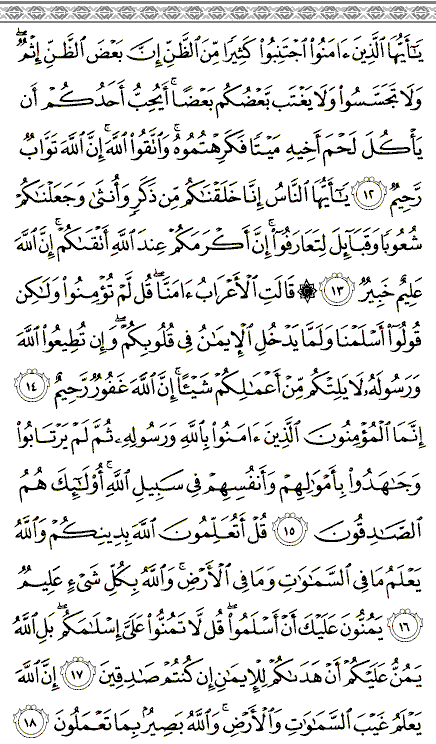 يَـٰٓأَيُّهَا ٱلَّذِينَ ءَامَنُوا۟ ٱجْتَنِبُوا۟ كَثِيرًا مِّنَ ٱلظَّنِّ إِنَّ بَعْضَ ٱلظَّنِّ إِثْمٌ ۖ
وَلَا تَجَسَّسُوا۟ وَلَا يَغْتَب بَّعْضُكُم بَعْضًا ۚ أَيُحِبُّ أَحَدُكُمْ أَن
يَأْكُلَ لَحْمَ أَخِيهِ مَيْتًا فَكَرِهْتُمُوهُ ۚ وَٱتَّقُوا۟ ٱللَّهَ ۚ إِنَّ ٱللَّهَ تَوَّابٌ
رَّحِيمٌ ١٢ يَـٰٓأَيُّهَا ٱلنَّاسُ إِنَّا خَلَقْنَـٰكُم مِّن ذَكَرٍ وَأُنثَىٰ وَجَعَلْنَـٰكُمْ
شُعُوبًا وَقَبَآئِلَ لِتَعَارَفُوٓا۟ ۚ إِنَّ أَكْرَمَكُمْ عِندَ ٱللَّهِ أَتْقَىٰكُمْ ۚ إِنَّ ٱللَّهَ
عَلِيمٌ خَبِيرٌ ١٣ ۞ قَالَتِ ٱلْأَعْرَابُ ءَامَنَّا ۖ قُل لَّمْ تُؤْمِنُوا۟ وَلَـٰكِن
قُولُوٓا۟ أَسْلَمْنَا وَلَمَّا يَدْخُلِ ٱلْإِيمَـٰنُ فِى قُلُوبِكُمْ ۖ وَإِن تُطِيعُوا۟ ٱللَّهَ
وَرَسُولَهُۥ لَا يَلِتْكُم مِّنْ أَعْمَـٰلِكُمْ شَيْـًٔا ۚ إِنَّ ٱللَّهَ غَفُورٌ رَّحِيمٌ ١٤
إِنَّمَا ٱلْمُؤْمِنُونَ ٱلَّذِينَ ءَامَنُوا۟ بِٱللَّهِ وَرَسُولِهِۦ ثُمَّ لَمْ يَرْتَابُوا۟
وَجَـٰهَدُوا۟ بِأَمْوَٰلِهِمْ وَأَنفُسِهِمْ فِى سَبِيلِ ٱللَّهِ ۚ أُو۟لَـٰٓئِكَ هُمُ
ٱلصَّـٰدِقُونَ ١٥ قُلْ أَتُعَلِّمُونَ ٱللَّهَ بِدِينِكُمْ وَٱللَّهُ
يَعْلَمُ مَا فِى ٱلسَّمَـٰوَٰتِ وَمَا فِى ٱلْأَرْضِ ۚ وَٱللَّهُ بِكُلِّ شَىْءٍ عَلِيمٌ
١٦ يَمُنُّونَ عَلَيْكَ أَنْ أَسْلَمُوا۟ ۖ قُل لَّا تَمُنُّوا۟ عَلَىَّ إِسْلَـٰمَكُم ۖ بَلِ ٱللَّهُ
يَمُنُّ عَلَيْكُمْ أَنْ هَدَىٰكُمْ لِلْإِيمَـٰنِ إِن كُنتُمْ صَـٰدِقِينَ ١٧ إِنَّ ٱللَّهَ
يَعْلَمُ غَيْبَ ٱلسَّمَـٰوَٰتِ وَٱلْأَرْضِ ۚ وَٱللَّهُ بَصِيرٌۢ بِمَا تَعْمَلُونَ ١٨